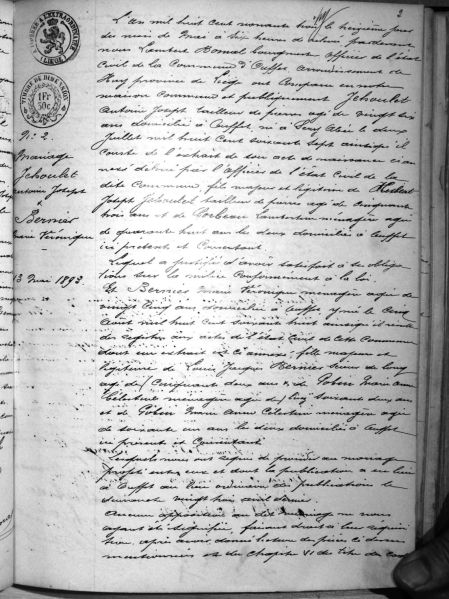 2
TIMBRE DE DIMENSION
1 Fr
50c
N° 2.
Mariage
Jehoulet
Antoine Joseph
&
Bernier
Marie Véronique
13 Mai 1893.
L'an mil huit cent nonante trois, le treizième jour
du mois de Mai à six heures de relevée pardevant
nous Lambert Bourguignon officier de l'état
civil de la Commune d'Ouffet, arrondissement de
Huy province de Liège ont comparu en notre
maison commune et publiquement Jehoulet
Antoine Joseph tailleur de pierres âgé de vingt cinq
ans domicilié à Ouffet, né à le deux
Juillet mil huit cent soixante sept ainsi qu'il
conste de l'extrait de son acte de naissance ci an
nexé délivré par l'officier de l'état civil de la
dite Commune, fils majeur et légitime de
Joseph Jehoulet tailleur de pierres âgé de cinquante
trois ans et de ménagère âgée
de quarante huit ans les deux domiciliés à Ouffet
ici présents et consentant.
Lequel a justifié d'avoir satisfait à ses obliga
tions sur la milice conformément à la loi.
Et Bernier Marie Véronique ménagère âgée de
vingt cinq ans domiciliée à Ouffet y née le cinq
Août mil huit cent soixante huit ainsi qu'il résulte
des registres aux actes de l'état civil de cette Commune
dont un extrait est ci annexé, fille majeure et
légitime de Louis Jacques Bernier scieur de long
âgé de cinquante deux ans & de Marie Anne
Célestine ménagère âgée de soixante deux ans
et de Marie Anne Célestine ménagère âgée
de soixante un ans les deux domiciliés à Ouffet
ici présents et consentant.
Lesquels nous ont requis de procéder au mariage
projeté entre eux et dont la publication a eu lieu
à Ouffet au lieu ordinaire des publications le
dimanche vingt trois avril dernier.
Aucune opposition au dit mariage ne nous
ayant été signifiée, faisant droit à leur réquisi
tion, après avoir donné lecture des pièces ci dessus
mentionnées et du chapitre VI du titre du code